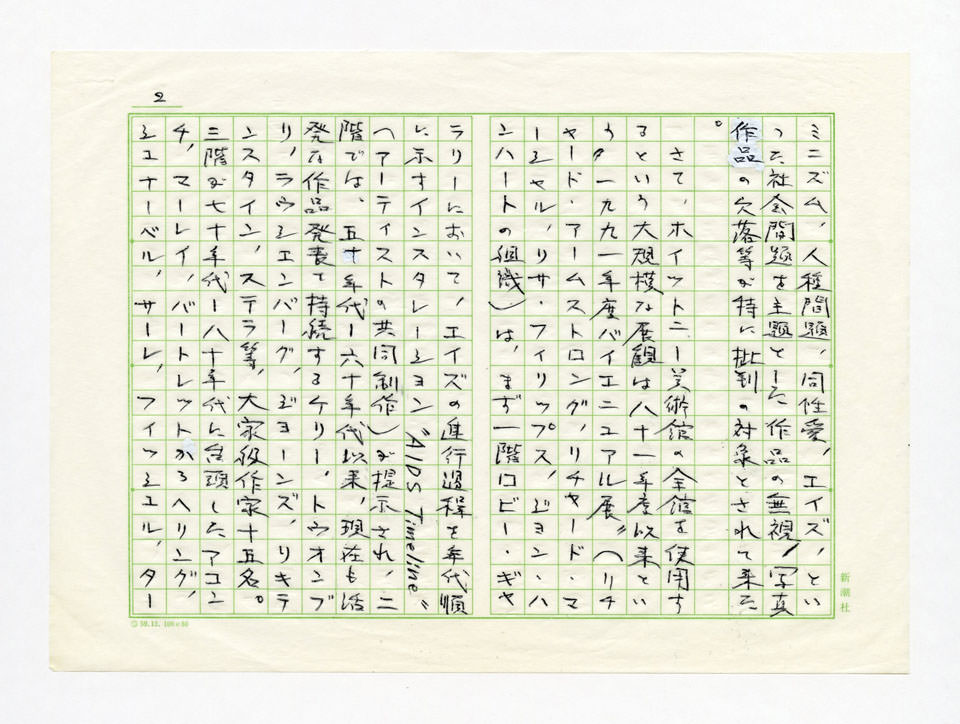 2
ミニズム、人種問題、同性愛、エイズ、とい
った社会問題を主題とした作品の無視、写真
作品の欠落等が特に批判の対象とされて来た
。
さて、ホイットニー美術館の全館を使用す
るという大規模な展観は八十一年度以来とい
う〝一九九一年度バイエニュアル展〟(リチ
ャード・アームストロング、リチャード・マ
ーシャル、リサ・フィリップス、ジョン・ハ
ンハートの組織)は、まず一階ロビー・ギャ
ラリーにおいて、エイズの進行過程を年代順
に示すインスタレーション“AIDS Timeline”
(アーティストの共同制作)が提示され、二
階では、五十年代―六十年代以来、現在も活
発な作品発表を持続するケリー、トウオンブ
リ、ラウシェンバーグ、ジョーンズ、リキテ
ンスタイン、ステラ等、大家級作家十五名。
三階が七十年代―八十年代に台頭したアコン
チ、マーレイ、バートレットからヘリング、
シュナーベル、サーレ、フィッシュル、ター
新潮社
59.12. 100×50